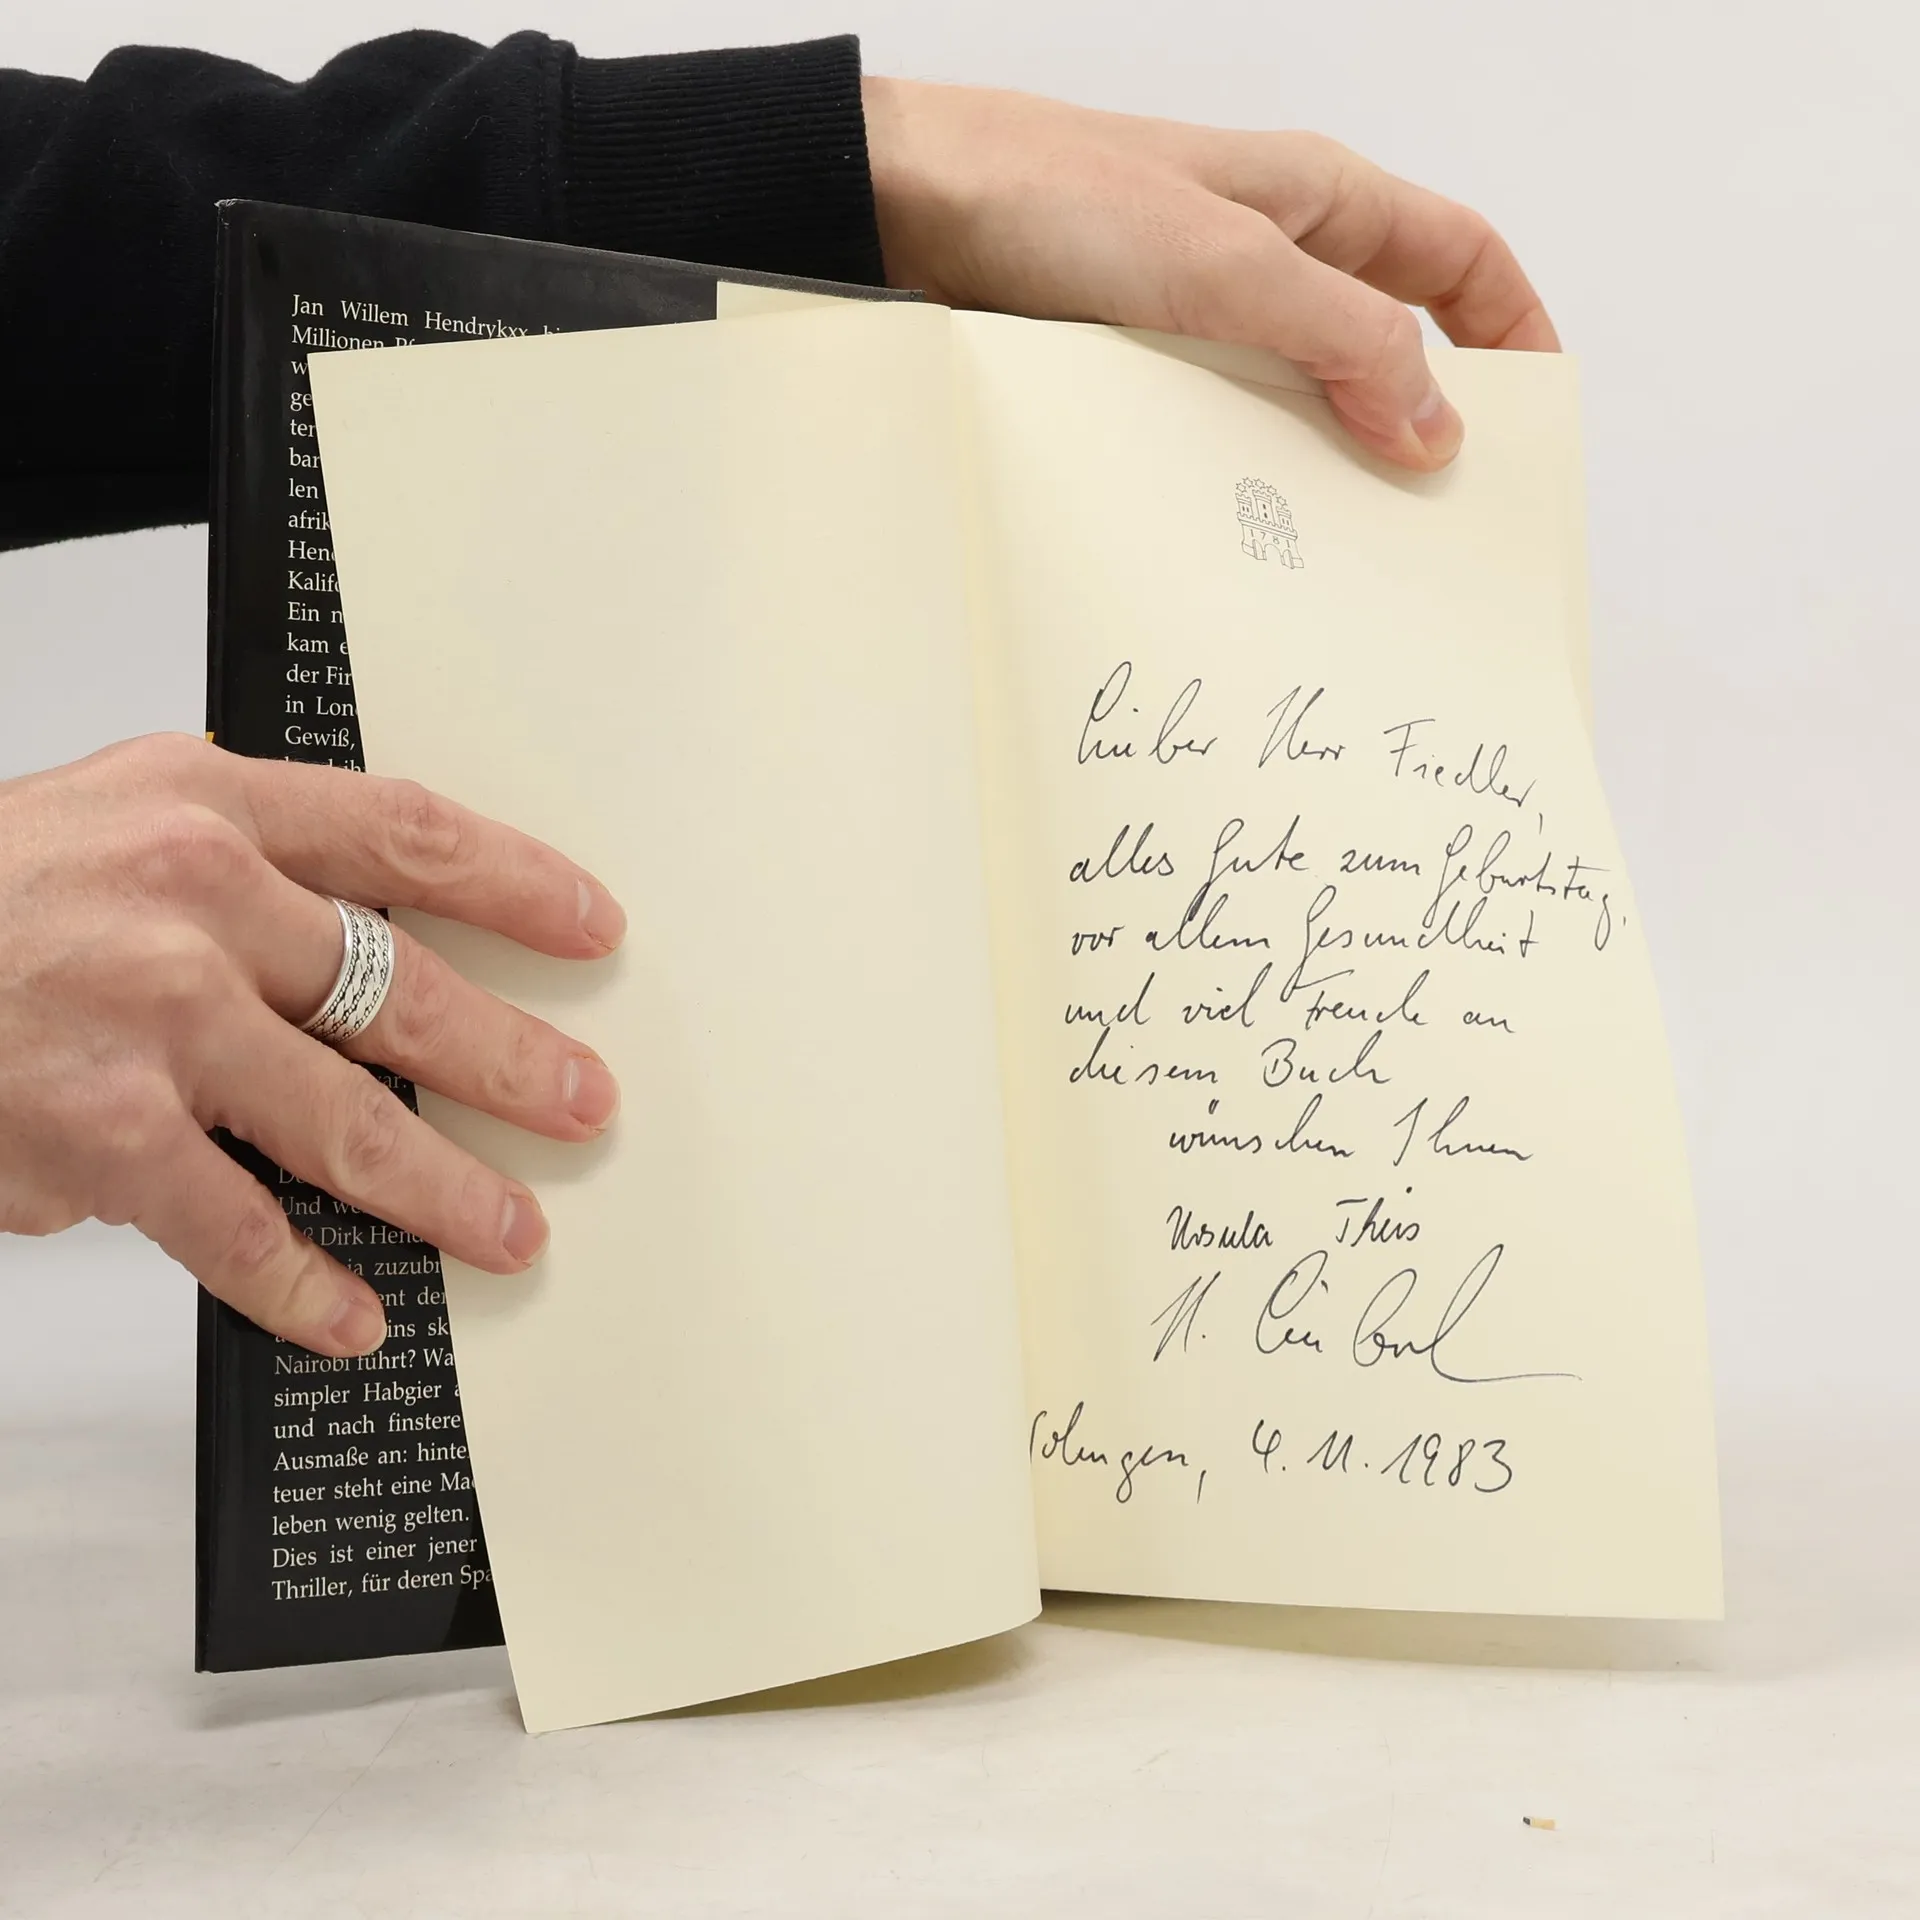 Jan Willem Hendrykxx
Millionen
w
ge
ter
bar
len
afrik
Hen
Kalif
Ein n
kam e
der Fir
in Lon
Gewiß,
ar.
Und we
ß Dirk Hend
ia zuzubr
ent der
ins sk
Nairobi führt? Wa
simpler Habgier a
und nach finstere
Ausmaße an: hinte
teuer steht eine Mac
leben wenig gelten.
Dies ist einer jener
Thriller, für deren Spa
Lieber Herr Fiedler,
alles Gute zum Geburtstag,
vor allem Gesundheit
und viel Freude an
diesem Buch
wünschen Ihnen
Ursula Theis
H.
Solingen, 4.11.1983